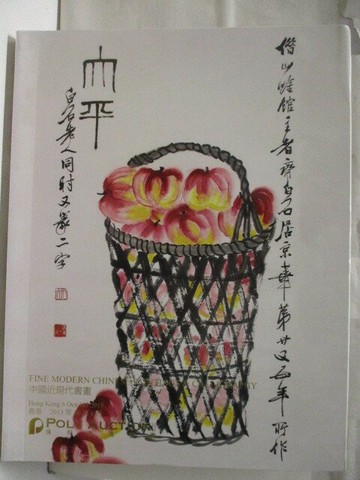 借山吟館主者齊白石居京華第廿又五年所作
太平
白石老人同時又篆二字
FINE MODERN CHIN
中國近現代書畫
Hong Kong 6 Oct
香港 2013
POLY AUCTION
保利